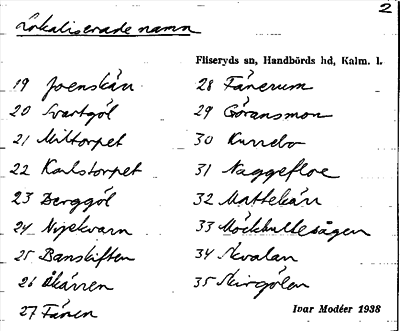 2
Lokaliserade namn
Fliseryds sn, Handbörds hd, Kalm. l.
19 Joenskärr
20 Svartgöl
21 Miltorpet
22 Karlstorpet
23 Berggöl
24 Nyekvarn
25 Banskiften
26 Åkärren
27 Fånen
28 Fånerum
29 Göransmon
30 Kurrebo
31 Naggefloe
32 Mattekärr
33 Möckhultesågen
34 Kvalan
35 Skirgölen
Ivar Modéer 1938